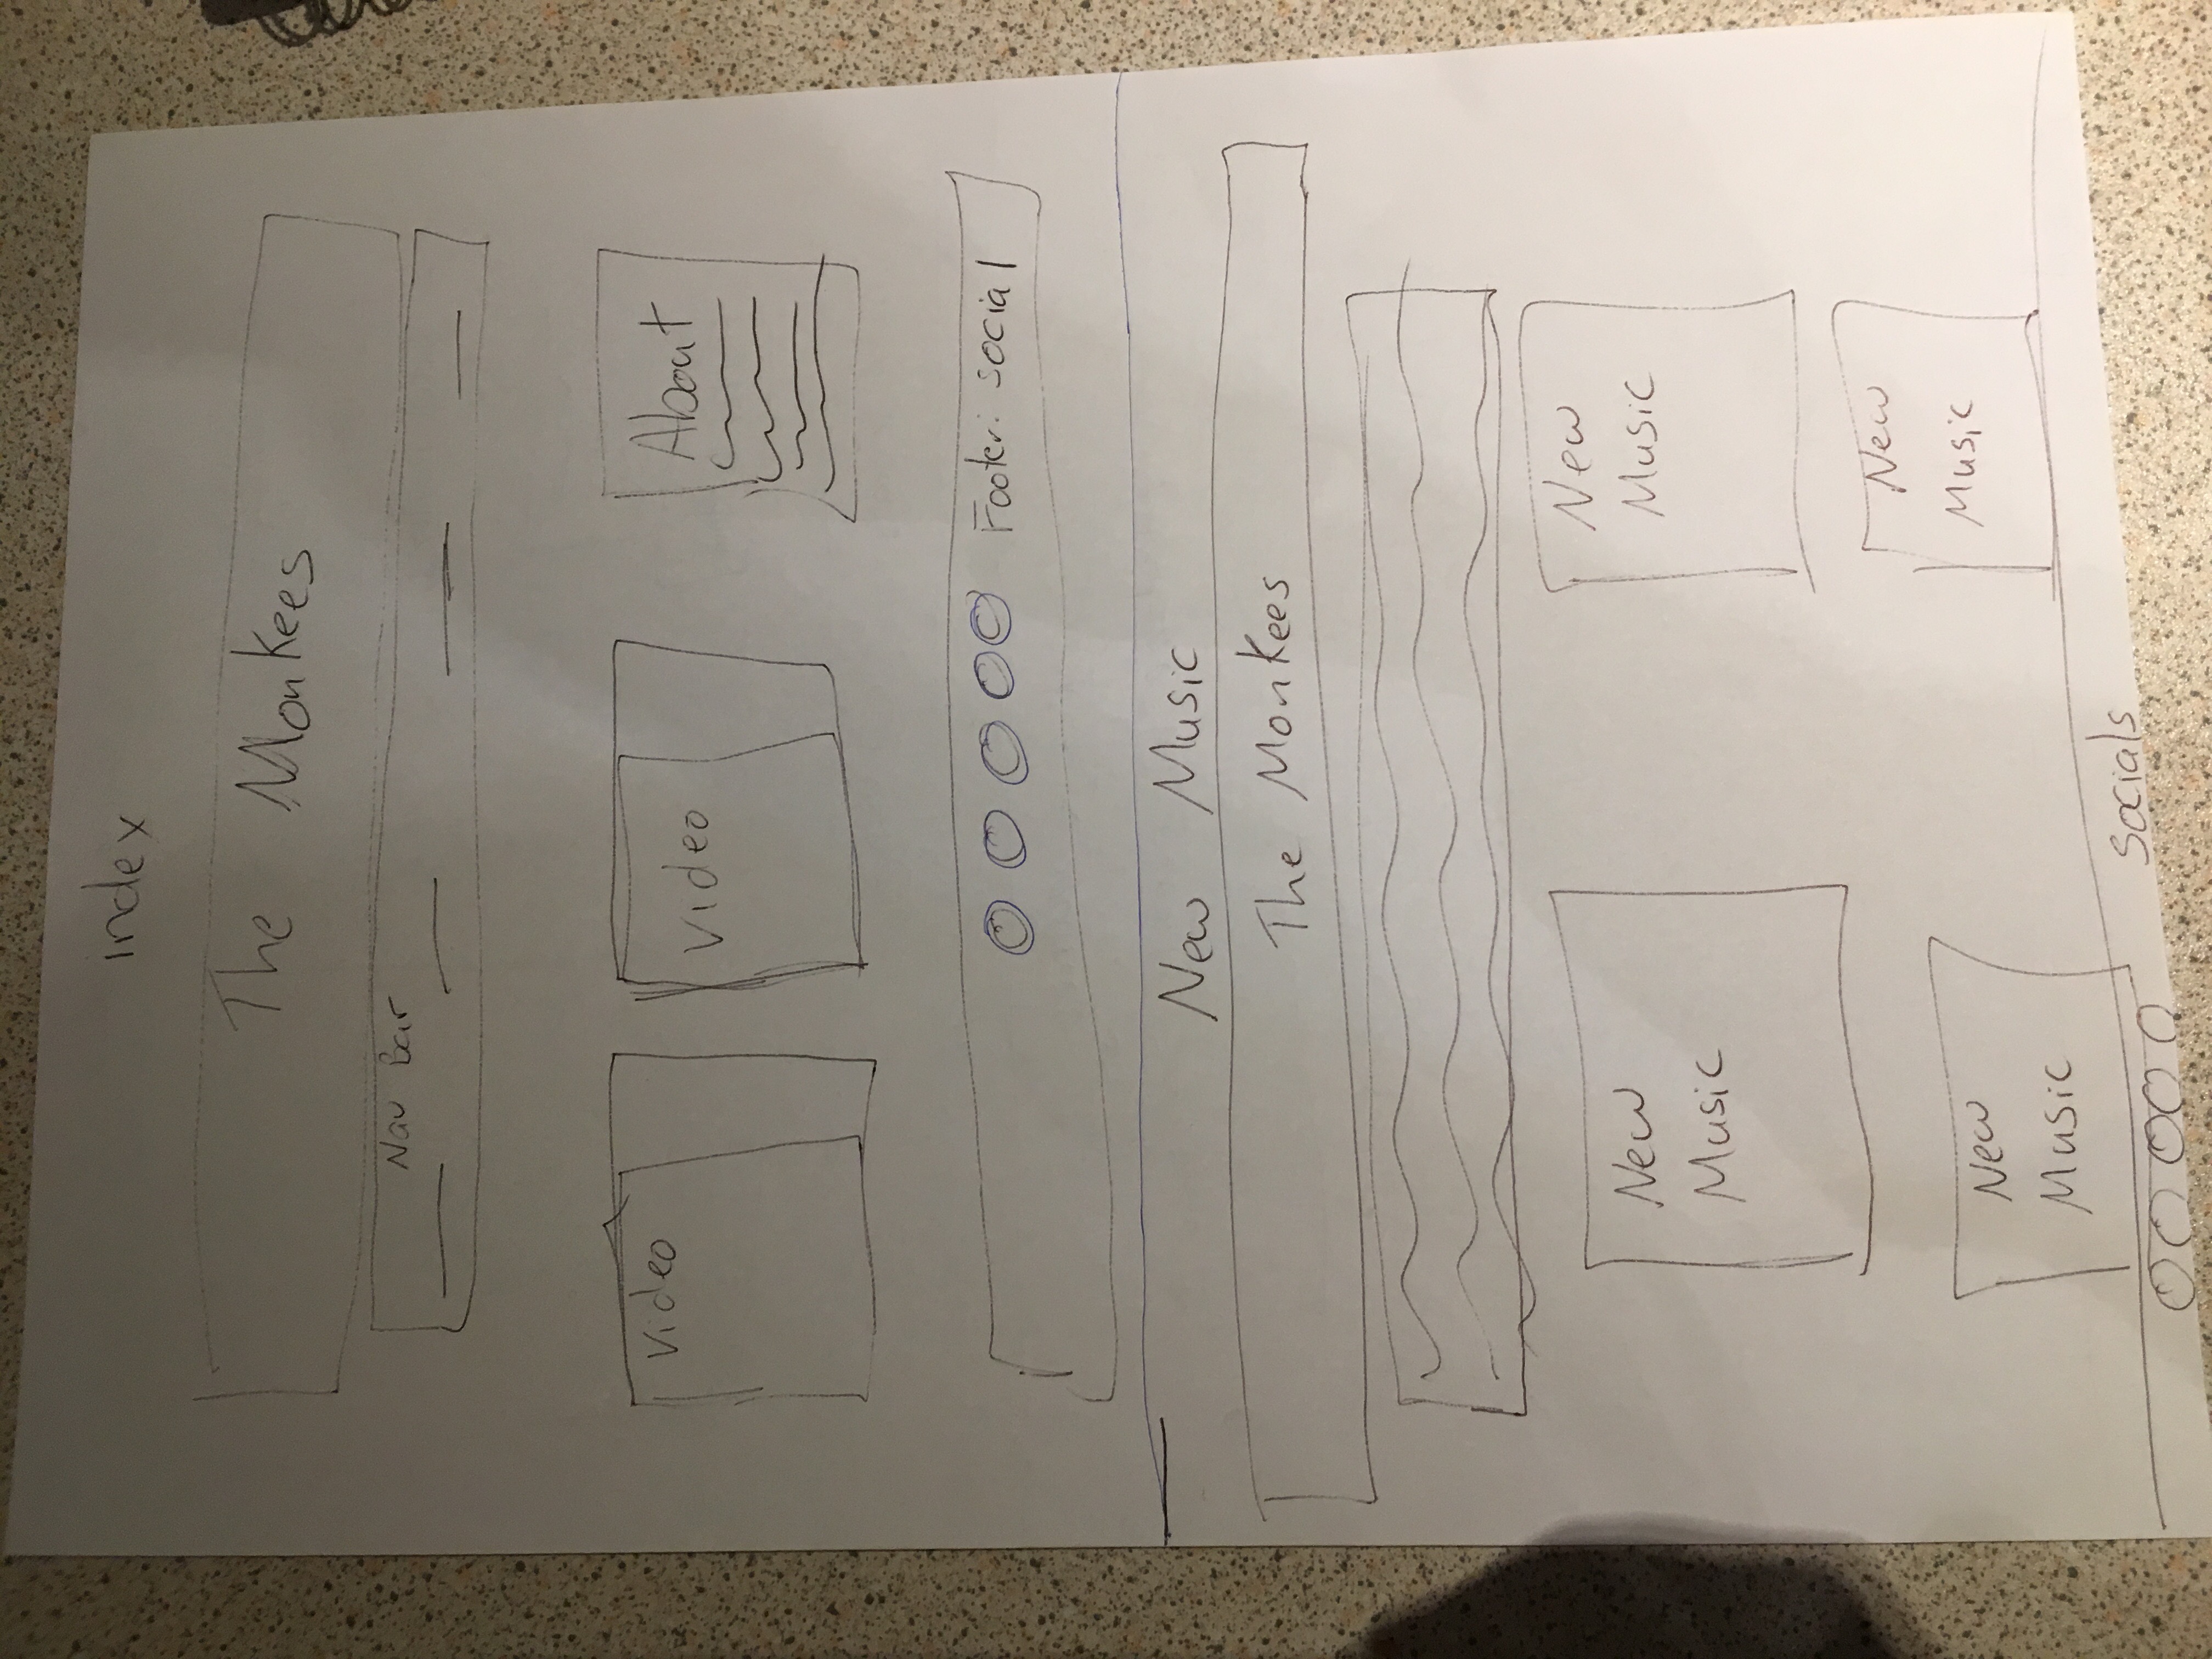 index
The Monkees
Nav Bar
Video
Video
About
Footer: social
New Music
The Monkees
New
Music
New
Music
New
Music
New
Music
Socials